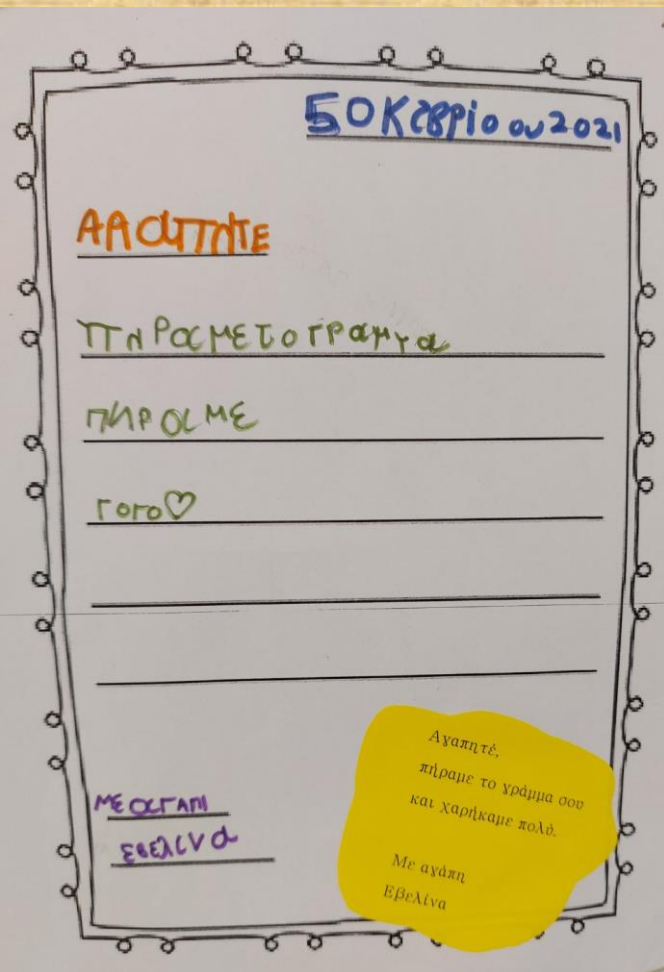 5 Οκτωβρίου 2021
ΑΑαπητε
πηραμετογραμμα
πηραμε
Γογο♡
με αγαπι
εβελινα
Αγαπητέ,
πήραμε το γράμμα σου
και χαρήκαμε πολύ.
Με αγάπη
Εβελίνα